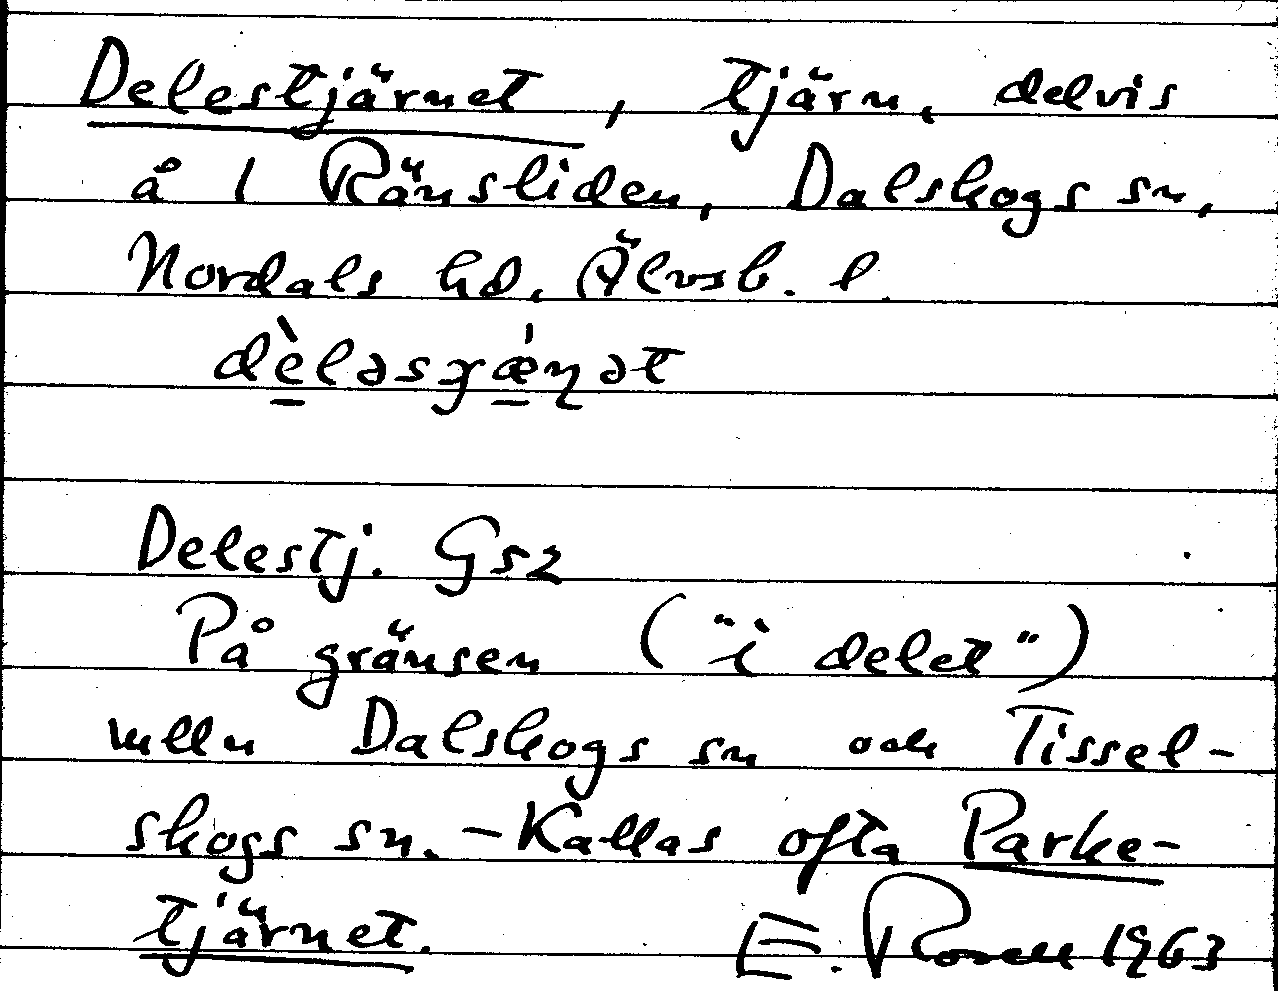 Delestjärnet, tjärn, delvis
å 1 Ränsliden, Dalskogs sn,
Nordals hd, Älvsb. l.
dèləsɣæ̀ɳət
Delestj. Gs2
På gränsen ("i delet")
melln Dalskogs sn och Tissel-
skogs sn. - Kallas ofta Parke-
tjärnet. E. Rosell 1963